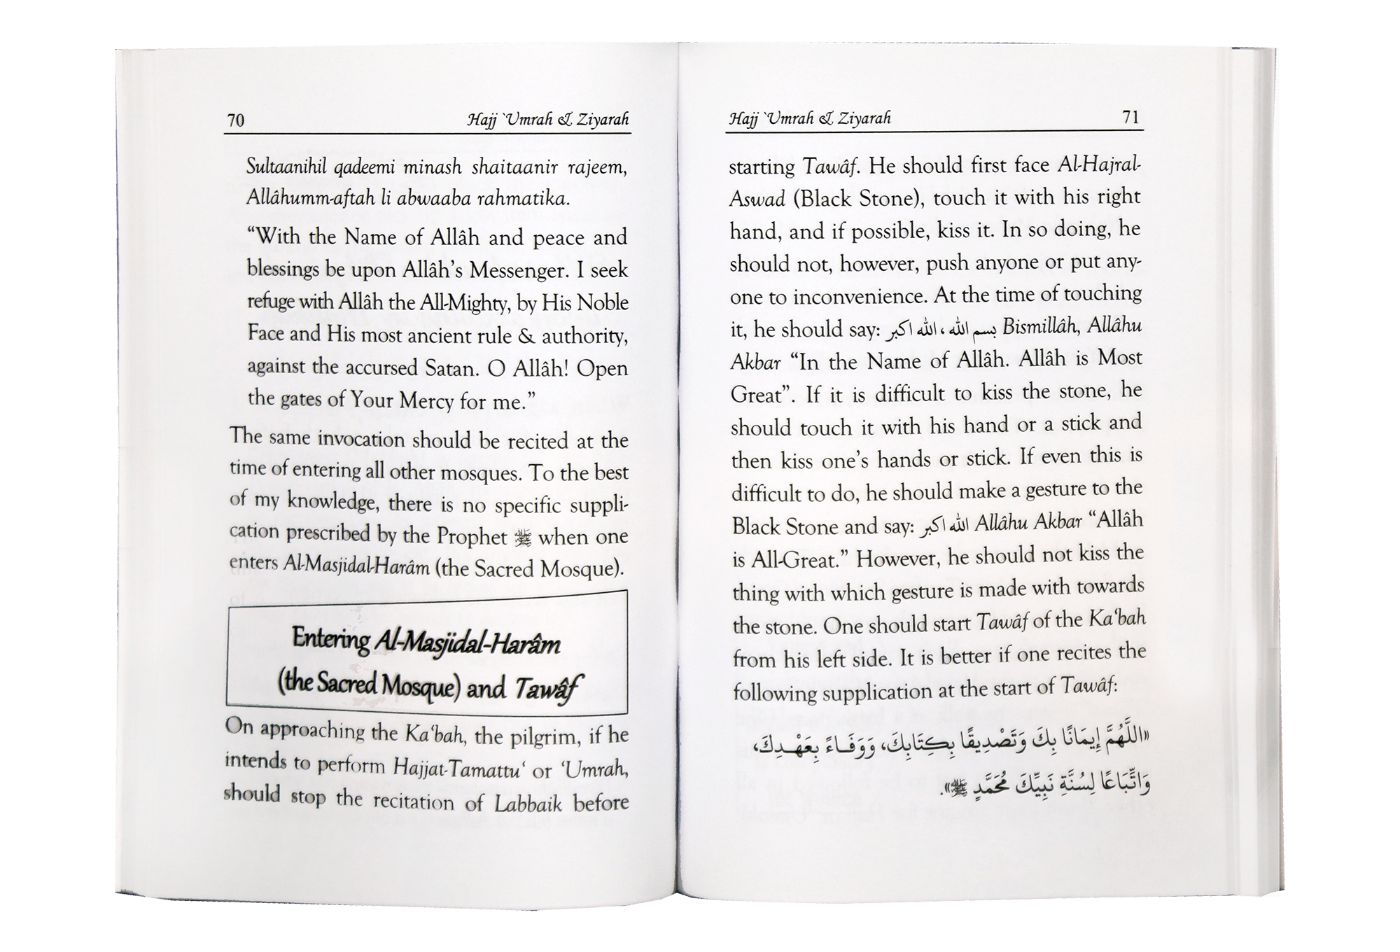 70 Hajj `Umrah & Ziyarah
Sultaanihil qadeemi minash shaitaanir rajeem,
Allâhumm-aftah li abwaaba rahmatika.
“With the Name of Allâh and peace and
blessings be upon Allâh’s Messenger. I seek
refuge with Allâh the All-Mighty, by His Noble
Face and His most ancient rule & authority,
against the accursed Satan. O Allâh! Open
the gates of Your Mercy for me.”
The same invocation should be recited at the
time of entering all other mosques. To the best
of my knowledge, there is no specific suppli-
cation prescribed by the Prophet ﷺ when one
enters Al-Masjidal-Harâm (the Sacred Mosque).
Entering Al-Masjidal-Harâm
(the Sacred Mosque) and Tawâf
On approaching the Ka‘bah, the pilgrim, if he
intends to perform Hajjat-Tamattu‘ or ‘Umrah,
should stop the recitation of Labbaik before
Hajj `Umrah & Ziyarah 71
starting Tawâf. He should first face Al-Hajral-
Aswad (Black Stone), touch it with his right
hand, and if possible, kiss it. In so doing, he
should not, however, push anyone or put any-
one to inconvenience. At the time of touching
it, he should say: بسم الله ، الله اكبر Bismillâh, Allâhu
Akbar “In the Name of Allâh. Allâh is Most
Great”. If it is difficult to kiss the stone, he
should touch it with his hand or a stick and
then kiss one’s hands or stick. If even this is
difficult to do, he should make a gesture to the
Black Stone and say: الله اكبر Allâhu Akbar “Allâh
is All-Great.” However, he should not kiss the
thing with which gesture is made with towards
the stone. One should start Tawâf of the Ka‘bah
from his left side. It is better if one recites the
following supplication at the start of Tawâf:
«اللَّهُمَّ إِيمَانًا بِكَ وَتَصْدِيقًا بِكِتَابِكَ، وَوَفَاءً بِعَهْدِكَ،
وَاتِّبَاعًا لِسُنَّةِ نَبِيِّكَ مُحَمَّدٍ ﷺ».